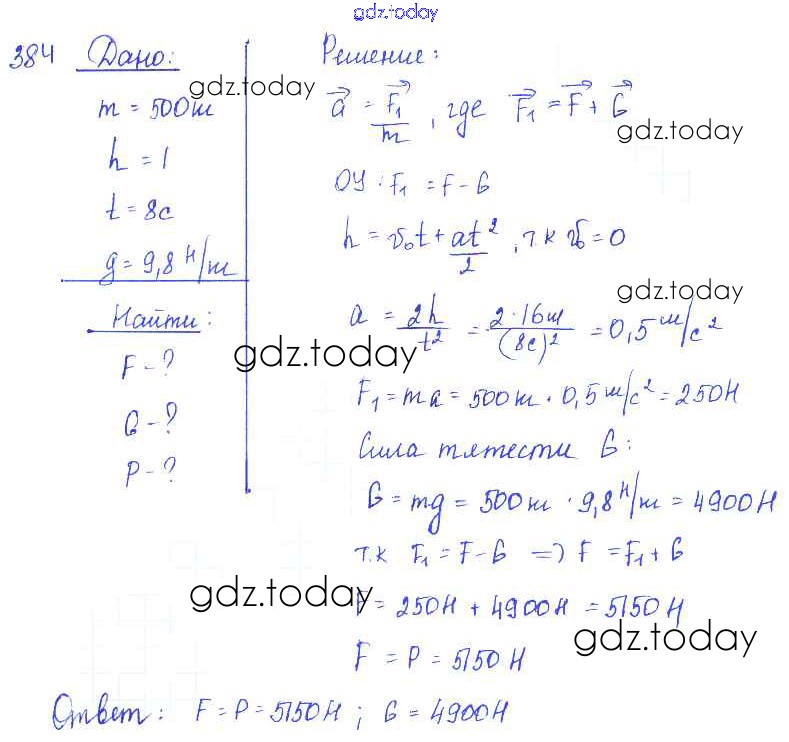 gdz.today
384 Дано:
gdz.today
m = 500 кг
h = 1
t = 8с
g = 9,8 Н/кг
Найти:
F - ?
G - ?
P - ?
Решение:
a⃗ = F⃗₁/m, где F⃗₁ = F⃗ + G⃗
gdz.today
ОУ: F₁ = F - G
h = v₀t + at²/2, т.к v₀ = 0
gdz.today
a = 2h/t² = 2·16м/(8с)² = 0,5 м/с²
gdz.today
F₁ = ma = 500 кг · 0,5 м/с² = 250Н
Сила тяжести G:
G = mg = 500 кг · 9,8 Н/кг = 4900Н
т.к F₁ = F - G => F = F₁ + G
gdz.today
F = 250Н + 4900Н = 5150Н
gdz.today
F = P = 5150Н
Ответ: F = P = 5150Н; G = 4900Н